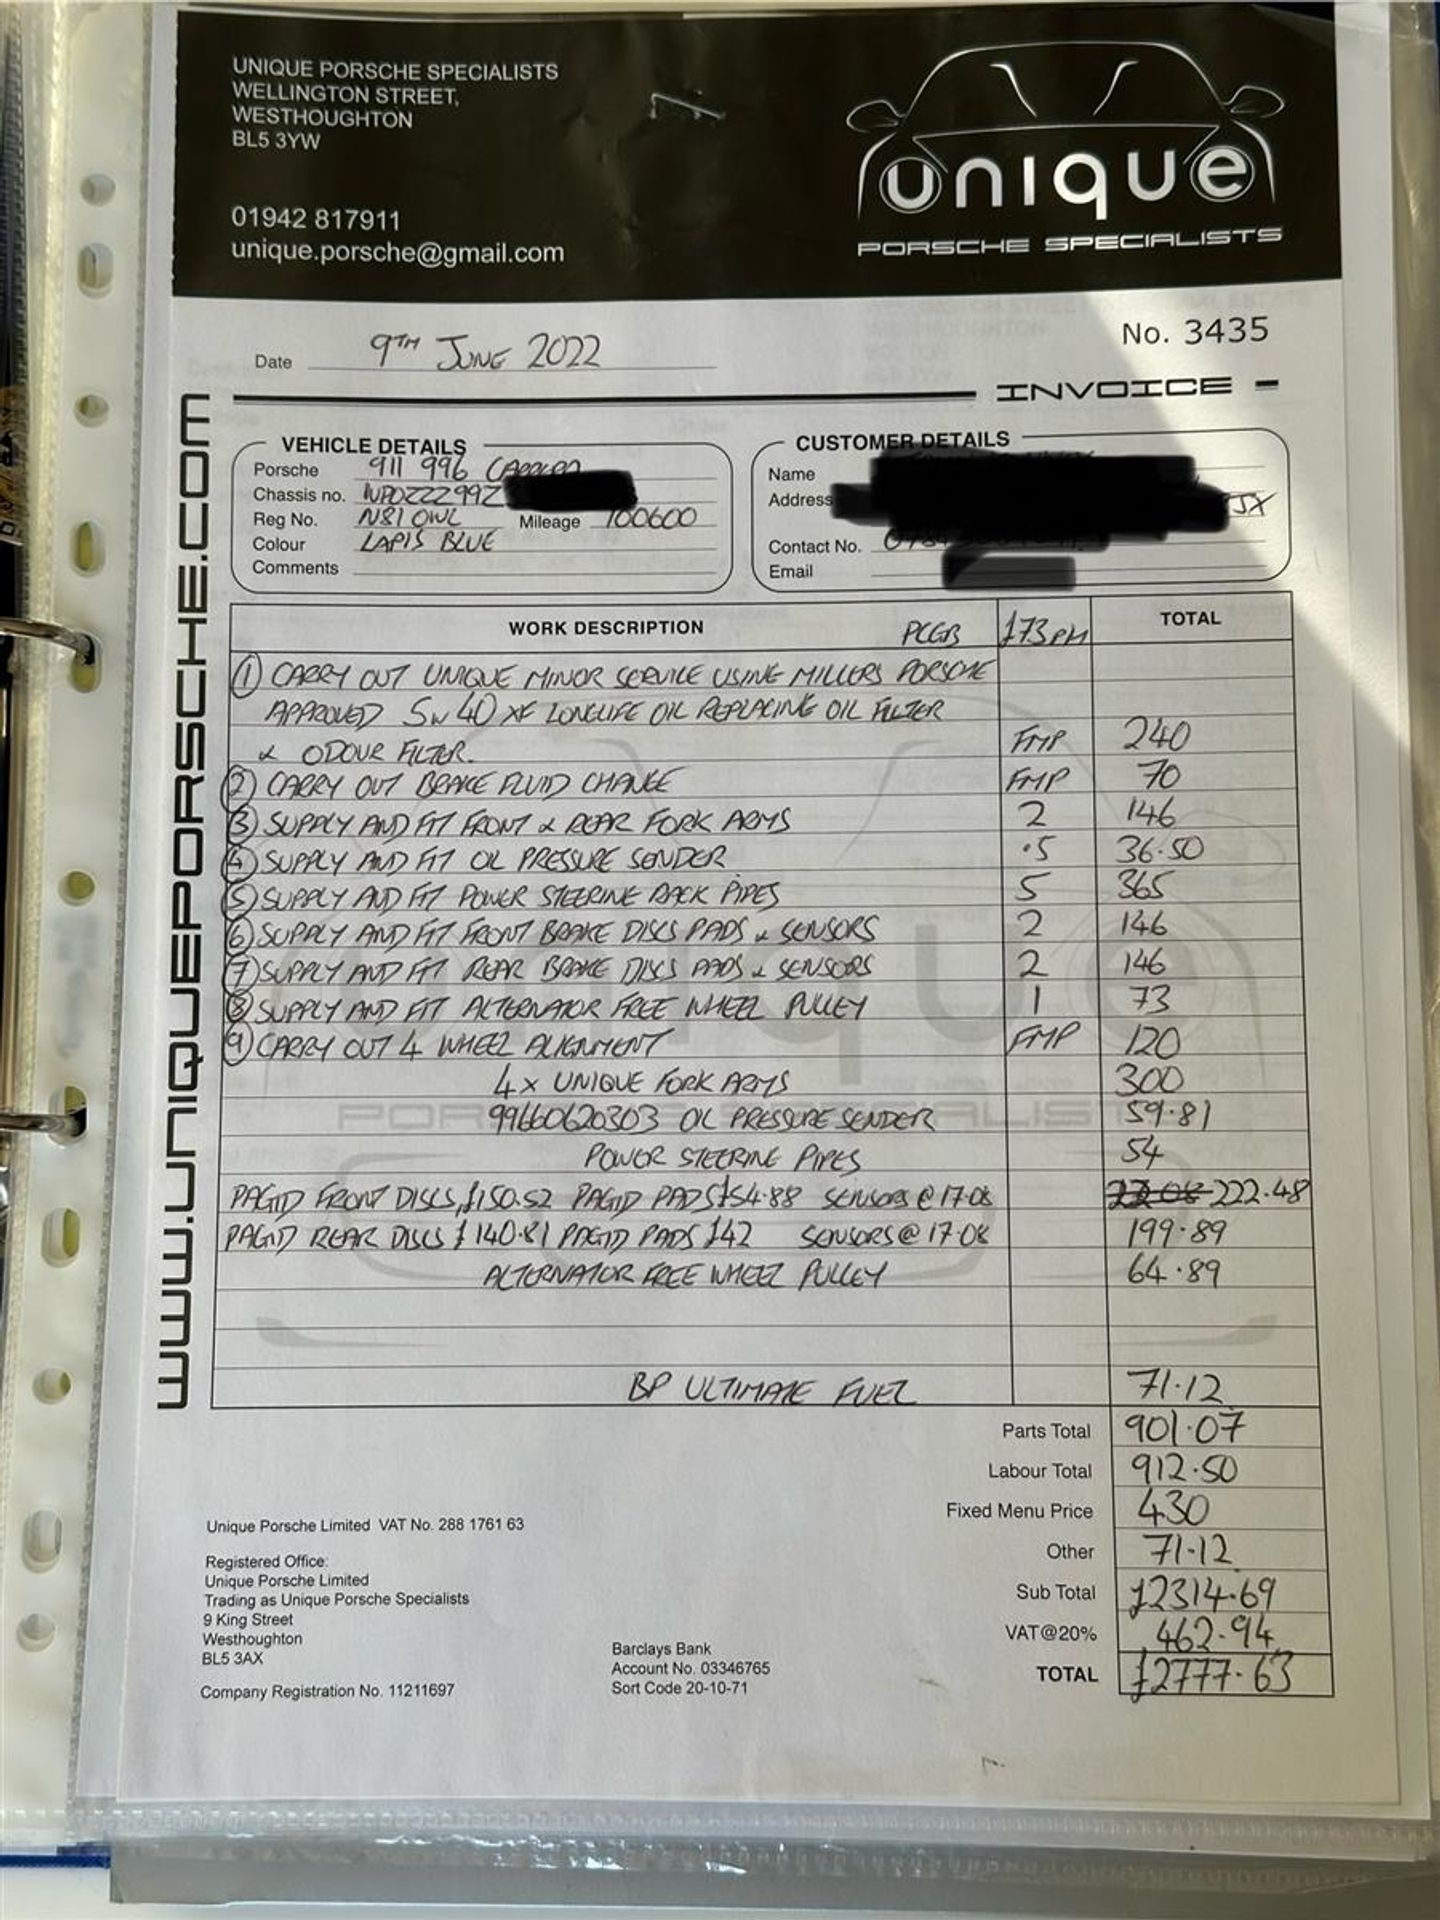 UNIQUE PORSCHE SPECIALISTS
WELLINGTON STREET,
WESTHOUGHTON
BL5 3YW
01942 817911
unique.porsche@gmail.com
unique
PORSCHE SPECIALISTS
No. 3435
Date 9TH JUNE 2022
INVOICE
WWW.UNIQUEPORSCHE.COM
VEHICLE DETAILS
Porsche 911 996 CARRERA
Chassis no. WPOZZZ99Z
Reg No. N81 OWL Mileage 100600
Colour LAPIS BLUE
Comments
CUSTOMER DETAILS
Name
Address
Contact No.
Email
WORK DESCRIPTION PCGB £73 PH TOTAL
1 CARRY OUT UNIQUE MINOR SERVICE USING MILLERS PORSCHE
APPROVED 5W40 XF LONGLIFE OIL REPLACING OIL FILTER
& ODOUR FILTER. FMP 240
2 CARRY OUT BRAKE FLUID CHANGE FMP 70
3 SUPPLY AND FIT FRONT & REAR FORK ARMS 2 146
4 SUPPLY AND FIT OIL PRESSURE SENDER .5 36.50
5 SUPPLY AND FIT POWER STEERING RACK PIPES 5 365
6 SUPPLY AND FIT FRONT BRAKE DISCS PADS & SENSORS 2 146
7 SUPPLY AND FIT REAR BRAKE DISCS PADS & SENSORS 2 146
8 SUPPLY AND FIT ALTERNATOR FREE WHEEL PULLEY 1 73
9 CARRY OUT 4 WHEEL ALIGNMENT FMP 120
4x UNIQUE FORK ARMS 300
99660620303 OIL PRESSURE SENDER 59.81
POWER STEERING PIPES 54
PAGID FRONT DISCS £150.52 PAGID PADS £54.88 SENSORS @ 17.08 222.48
PAGID REAR DISCS £140.81 PAGID PADS £42 SENSORS @ 17.08 199.89
ALTERNATOR FREE WHEEL PULLEY 64.89
BP ULTIMATE FUEL 71.12
Parts Total 901.07
Labour Total 912.50
Fixed Menu Price 430
Other 71.12
Sub Total £2314.69
VAT@20% 462.94
TOTAL £2777.63
Unique Porsche Limited VAT No. 288 1761 63
Registered Office:
Unique Porsche Limited
Trading as Unique Porsche Specialists
9 King Street
Westhoughton
BL5 3AX
Company Registration No. 11211697
Barclays Bank
Account No. 03346765
Sort Code 20-10-71